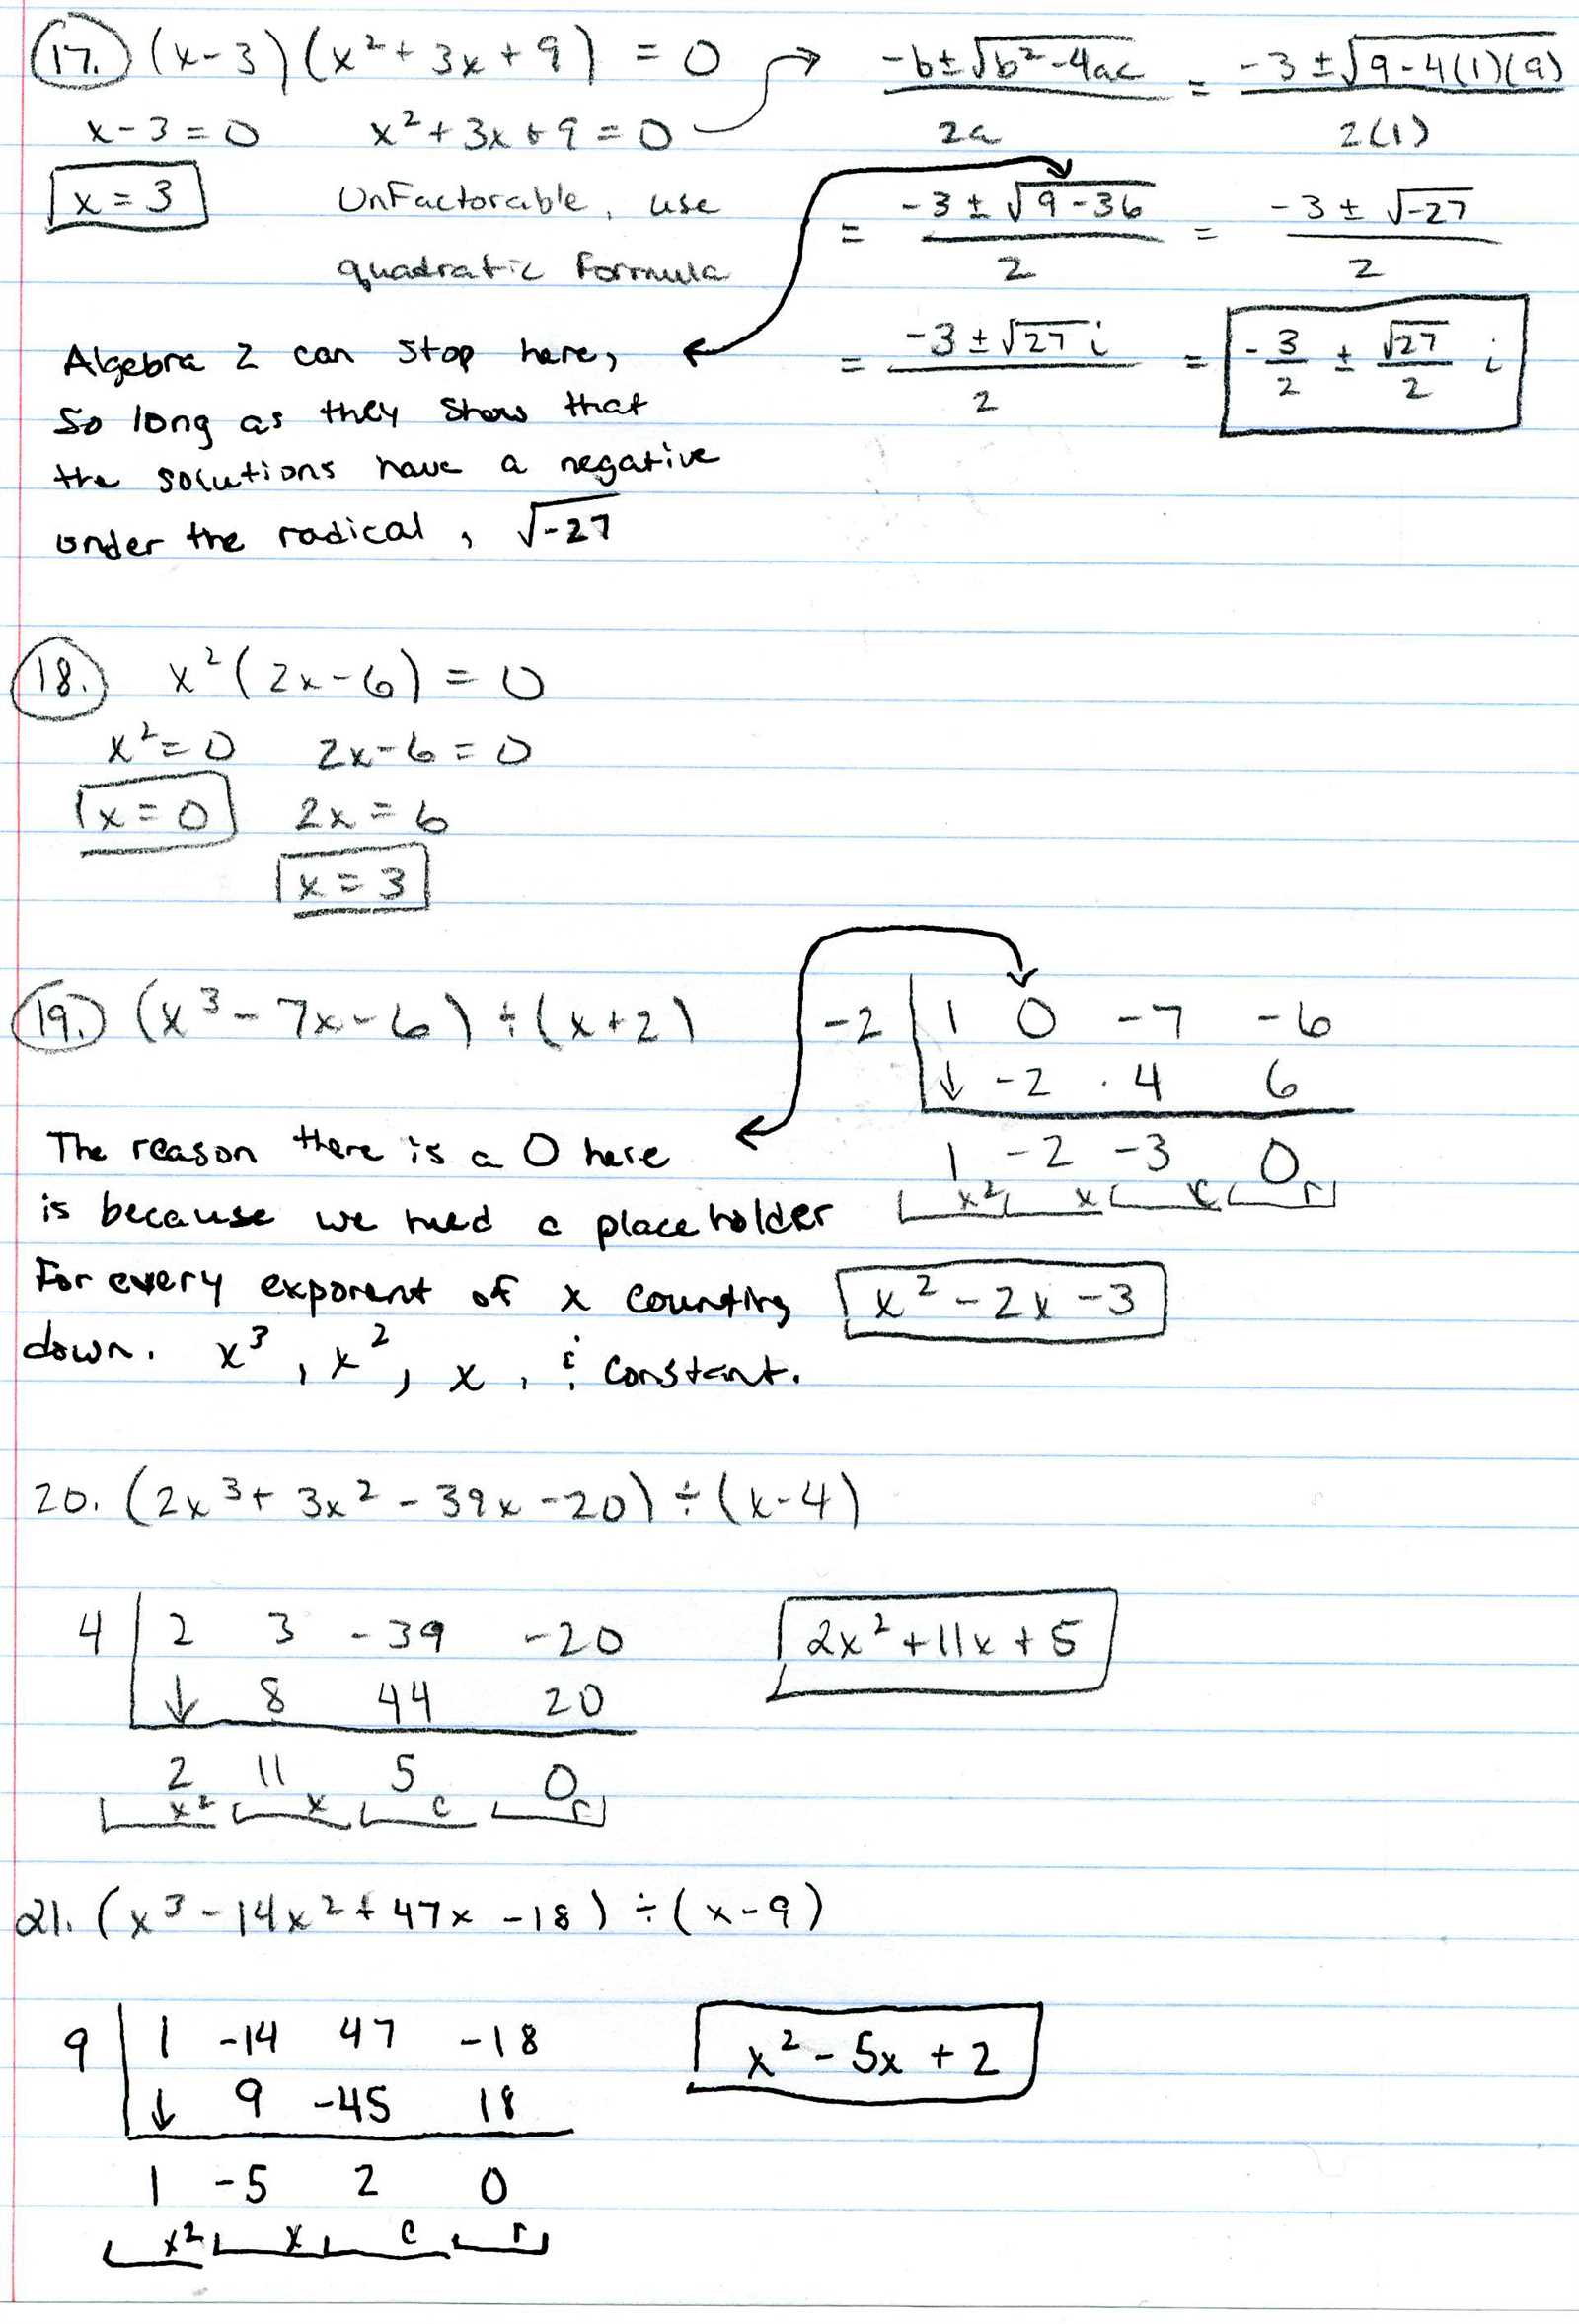 17. (x-3)(x²+3x+9) = 0 → -b±√b²-4ac / 2a = -3±√9-4(1)(9) / 2(1)
x-3=0 x²+3x+9=0
x=3 UnFactorable, use
quadratic Formula
= -3±√9-36 / 2 = -3±√-27 / 2
= -3±√27 i / 2 = -3/2 ± √27/2 i
Algebra 2 can stop here,
So long as they show that
the solutions have a negative
under the radical, √-27
18. x²(2x-6) = 0
x²=0 2x-6=0
x=0 2x=6
x=3
19. (x³-7x-6)÷(x+2)
-2 | 1 0 -7 -6
↓ -2 4 6
1 -2 -3 0
x² x c r
The reason there is a 0 here
is because we need a placeholder
For every exponent of x counting
down. x³, x², x, & constant.
x²-2x-3
20. (2x³+3x²-39x-20)÷(x-4)
4 | 2 3 -39 -20
↓ 8 44 20
2 11 5 0
x² x c r
2x²+11x+5
21. (x³-14x²+47x-18)÷(x-9)
9 | 1 -14 47 -18
↓ 9 -45 18
1 -5 2 0
x² x c r
x²-5x+2